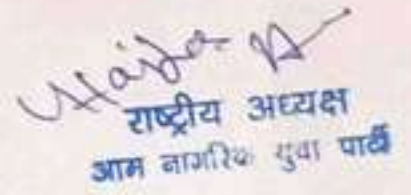 राष्ट्रीय अध्यक्ष
आम नागरिक युवा पार्टी